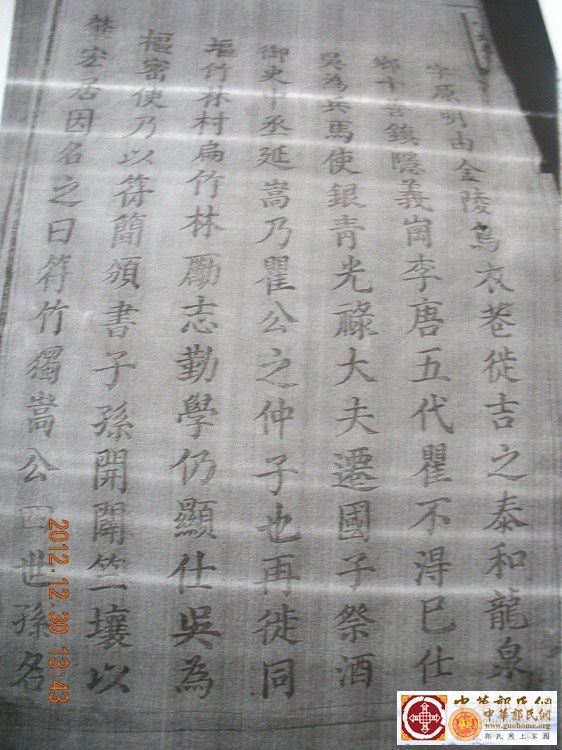 字原明由金陵烏衣巷徙吉之泰和龍泉
鄉十善鎮隱義崗李唐五代瞿不得已仕
吳為兵馬使銀青光祿大夫遷國子祭酒
御史中丞延嵩乃瞿公之仲子也再徙同
堀竹林村扁竹林勵志勤學仍顯仕吳為
樞密使乃以符簡頒書子孫開闢竺壤以
宏居因名之曰符竹獨嵩公四世孫名
2012.12.30 13:43
中華郭氏網
中華郭氏網
www.guohome.org
郭氏網上家園